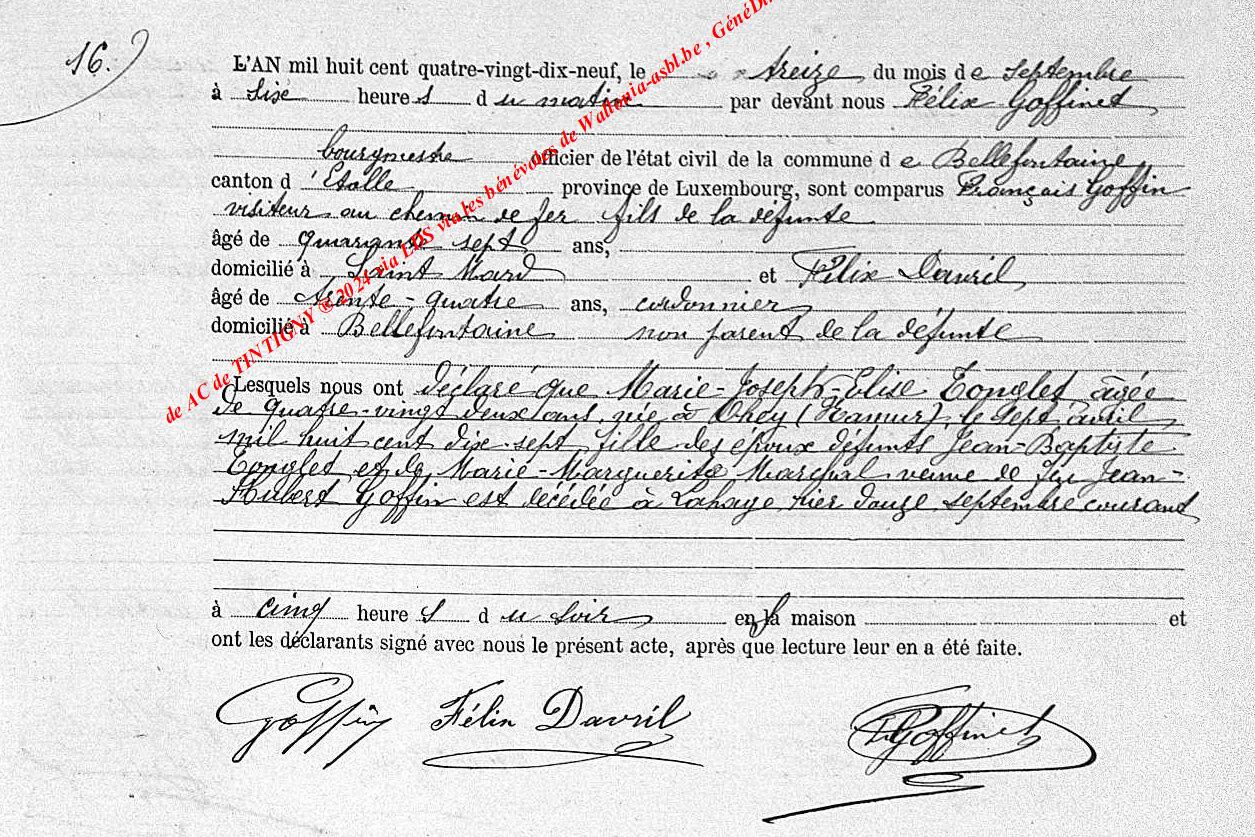 16.
L'AN mil huit cent quatre-vingt-dix-neuf, le treize du mois de septembre
à six heures du matin par devant nous Félix Goffinet
bourgmestre officier de l'état civil de la commune de Bellefontaine,
canton d'Etalle province de Luxembourg, sont comparus François Goffin
visiteur au chemin de fer fils de la défunte
âgé de quarante sept ans,
domicilié à Saint Mard et Félix Davril
âgé de trente-quatre ans, cordonnier
domicilié à Bellefontaine non parent de la défunte
Lesquels nous ont déclaré que Marie-Joseph-Elise Tonglet âgée
de quatre-vingt deux ans, née à Ohey (Namur), le sept avril
mil huit cent dix-sept, fille des époux défunts Jean-Baptiste
Tonglet et de Marie-Marguerite Marchal veuve de feu Jean-
Hubert Goffin est décédée à Lahage hier douze septembre courant
à cinq heures du soir en sa maison et
ont les déclarants signé avec nous le présent acte, après que lecture leur en a été faite.
Goffin Félin Davril F Goffinet
de AC de TINTIGNY ® 2024 via LDS via les bénévoles de Wallonia-asbl.be , GénéDi